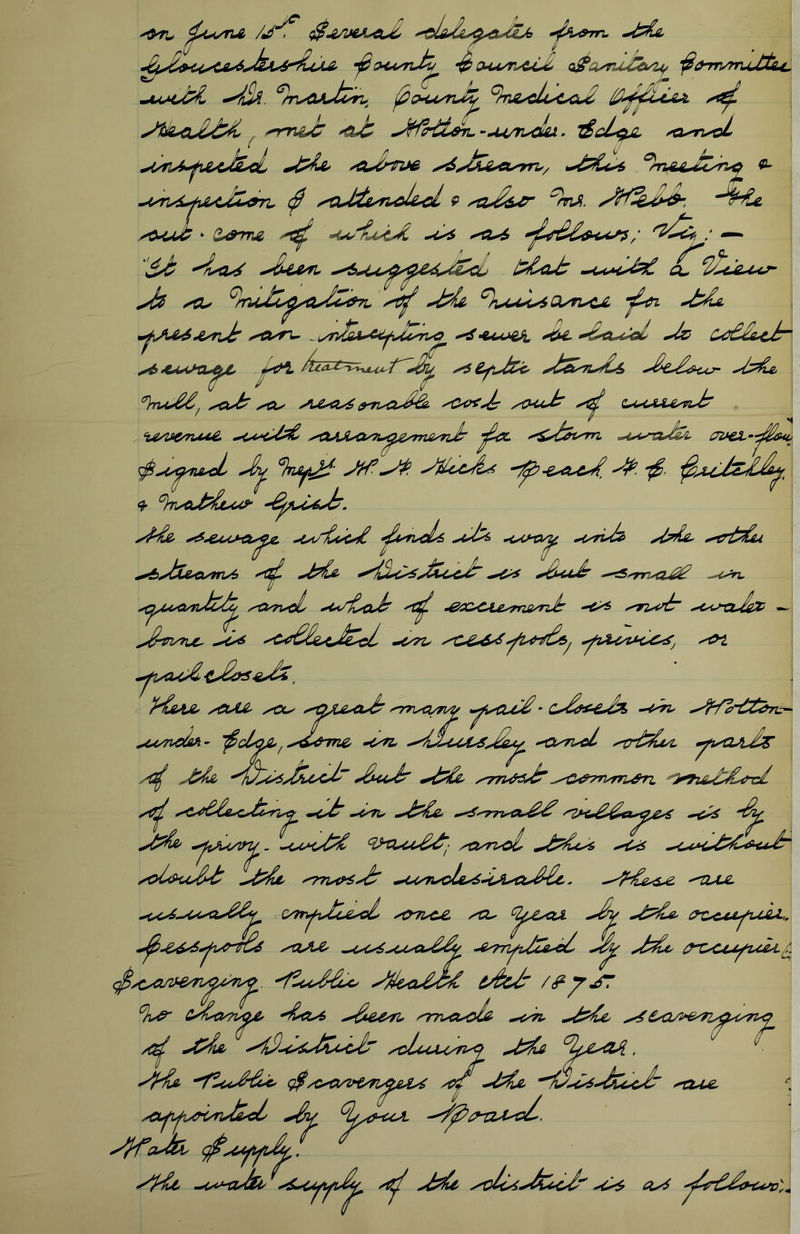 on June 1st. Several delegates from the
Gloucestershire County Council Sanitary Committee
with Dr. Martin, County Medical Officer of
Health, met at Wotton-under-Edge and
inspected the above stream, this Meeting &
inspection I attended & also Mr. Webb. The
out-come of which is as follows; Viz: —
'It has been suggested that with a View
to a Mitigation of the Nuisance for the
present an intercepting sewer be laid to collect
sewage for treatment by septic tanks below the
Mill, at a reasonable cost out of current
revenue with arrangement for storm water over-flow
Signed by Messrs H. H. Hicks Beach, H. B. Protheroe,
& Mathew Grist.
The sewage which finds its way into the other
streams of the District is but small in
quantity and what of excrement is not water-
borne is collected in cess-pools, privies, or
pail closets.
There are a great many pail-closets in Wotton-
under-Edge, some in Dursley and other parts
of the District but the most common method
of collecting it in the small villages is by
the privy-with Vault; and this is without
doubt the most undesirable. These are
usually emptied once a Year by the occupier.
Cess-pools are usually emptied by the occupier.
Scavenging. Public Health Act 1875.
No Change has been made in the scavenging
of the District during the Year.
The Public Scavengers of the District are
appointed by Your Board.
Water Supply.
The water supply of the district is as follows:-